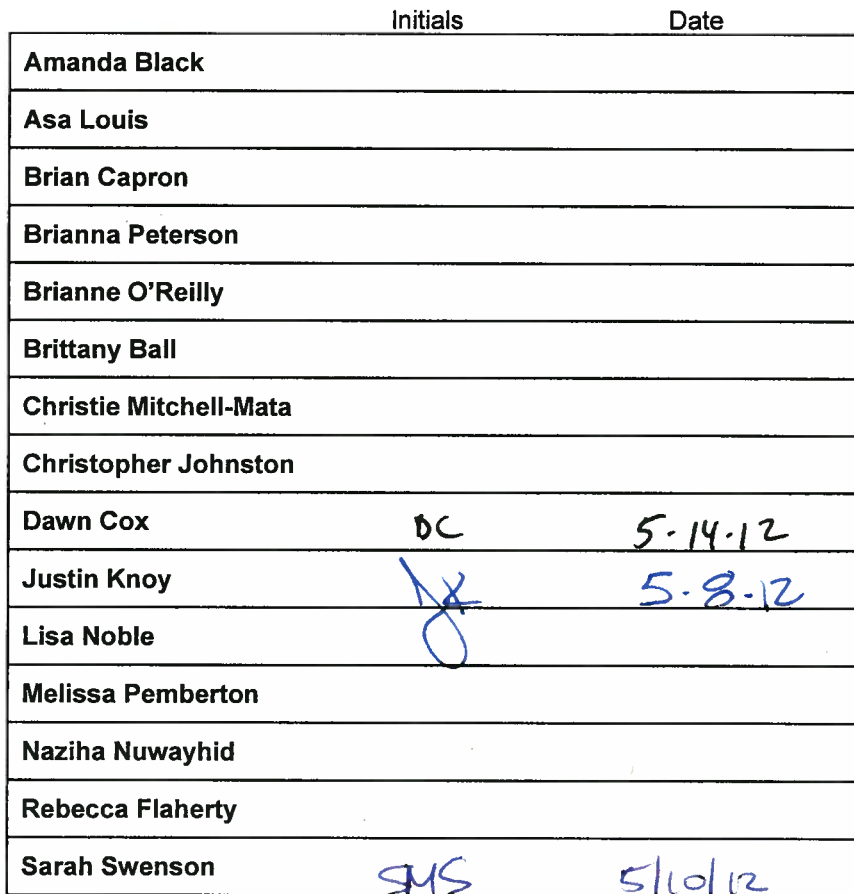 Initials Date
Amanda Black
Asa Louis
Brian Capron
Brianna Peterson
Brianne O'Reilly
Brittany Ball
Christie Mitchell-Mata
Christopher Johnston
Dawn Cox DC 5-14-12
Justin Knoy JK 5-8-12
Lisa Noble
Melissa Pemberton
Naziha Nuwayhid
Rebecca Flaherty
Sarah Swenson SMS 5/10/12